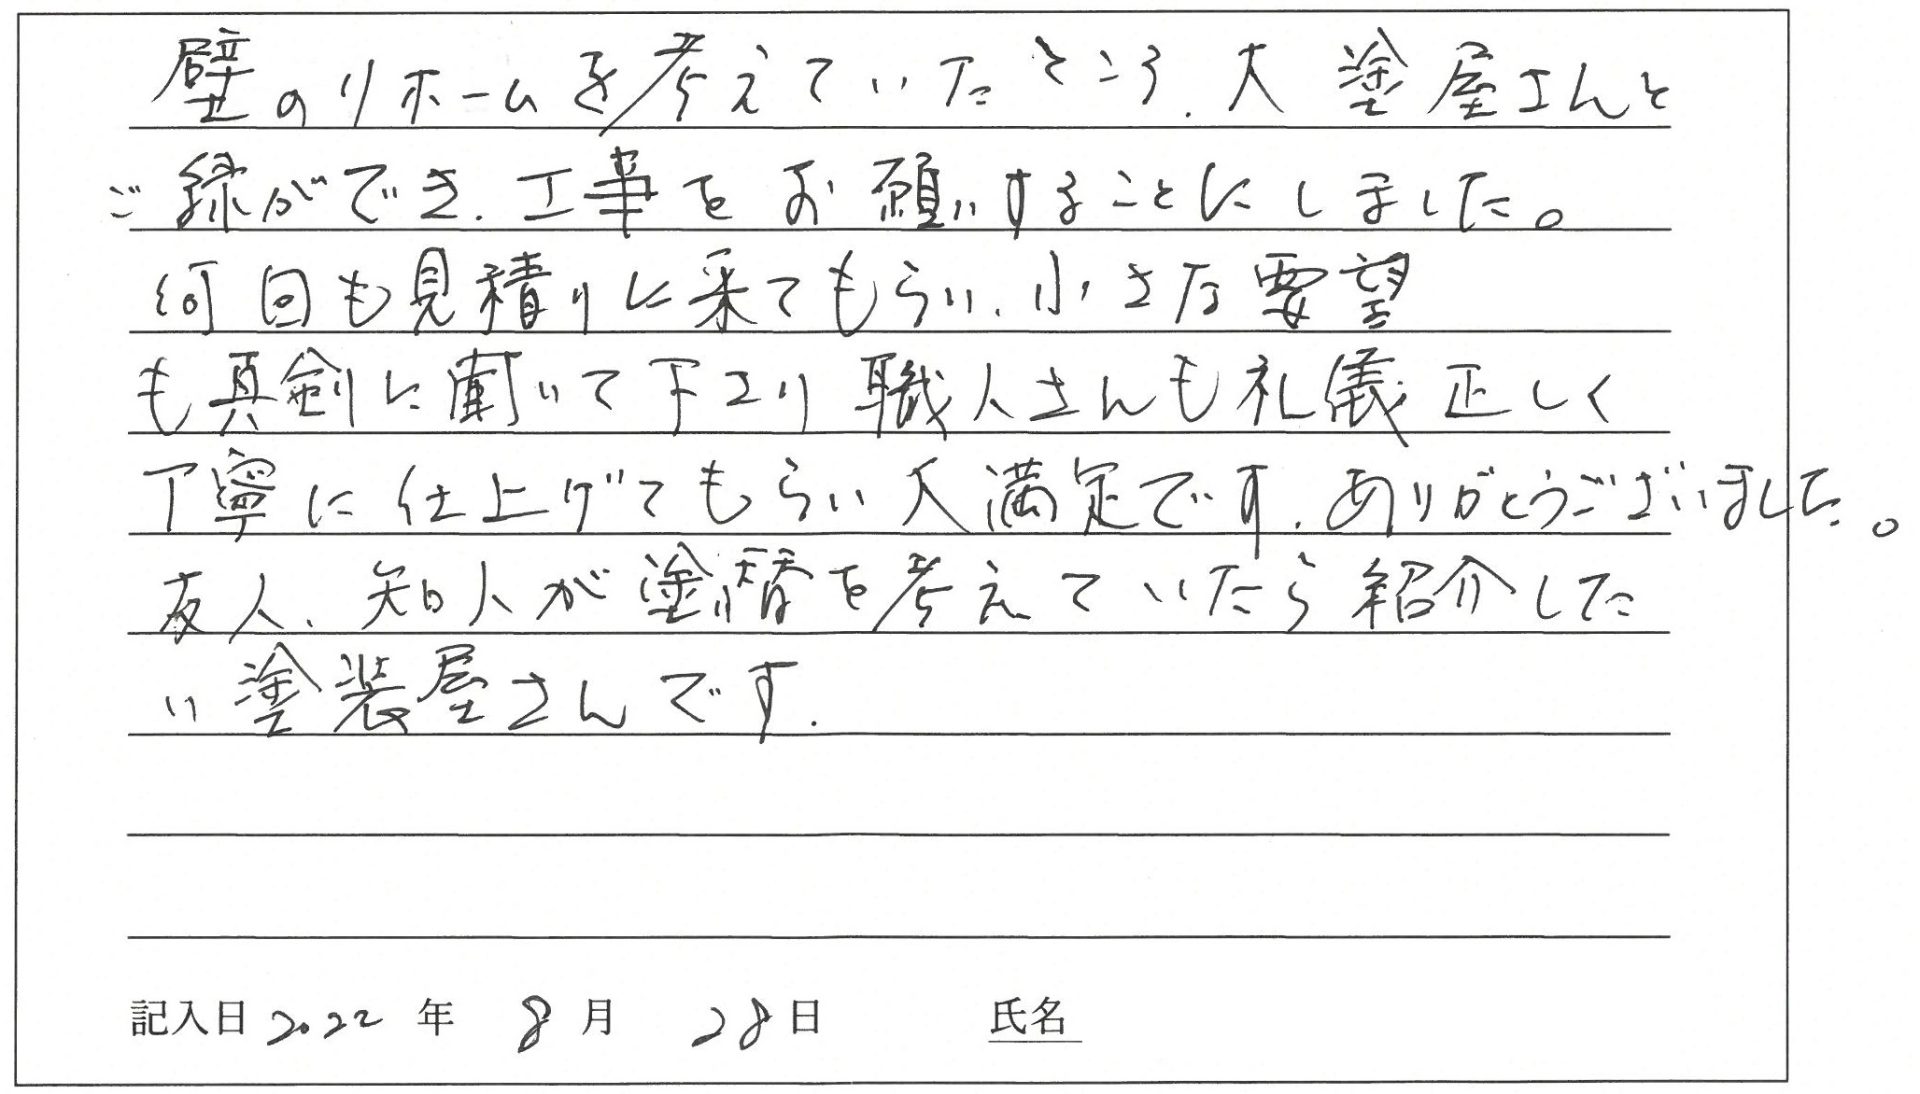 壁のリホームを考えていたところ、大塗屋さんと
ご縁ができ、工事をお願いすることにしました。
何回も見積りに来てもらい、小さな要望
も真剣に聞いて下さり職人さんも礼儀正しく
丁寧に仕上げてもらい大満足です。ありがとうございました。
友人、知人が塗替を考えていたら紹介した
い塗装屋さんです。
記入日 2022 年 8 月 28 日 氏名